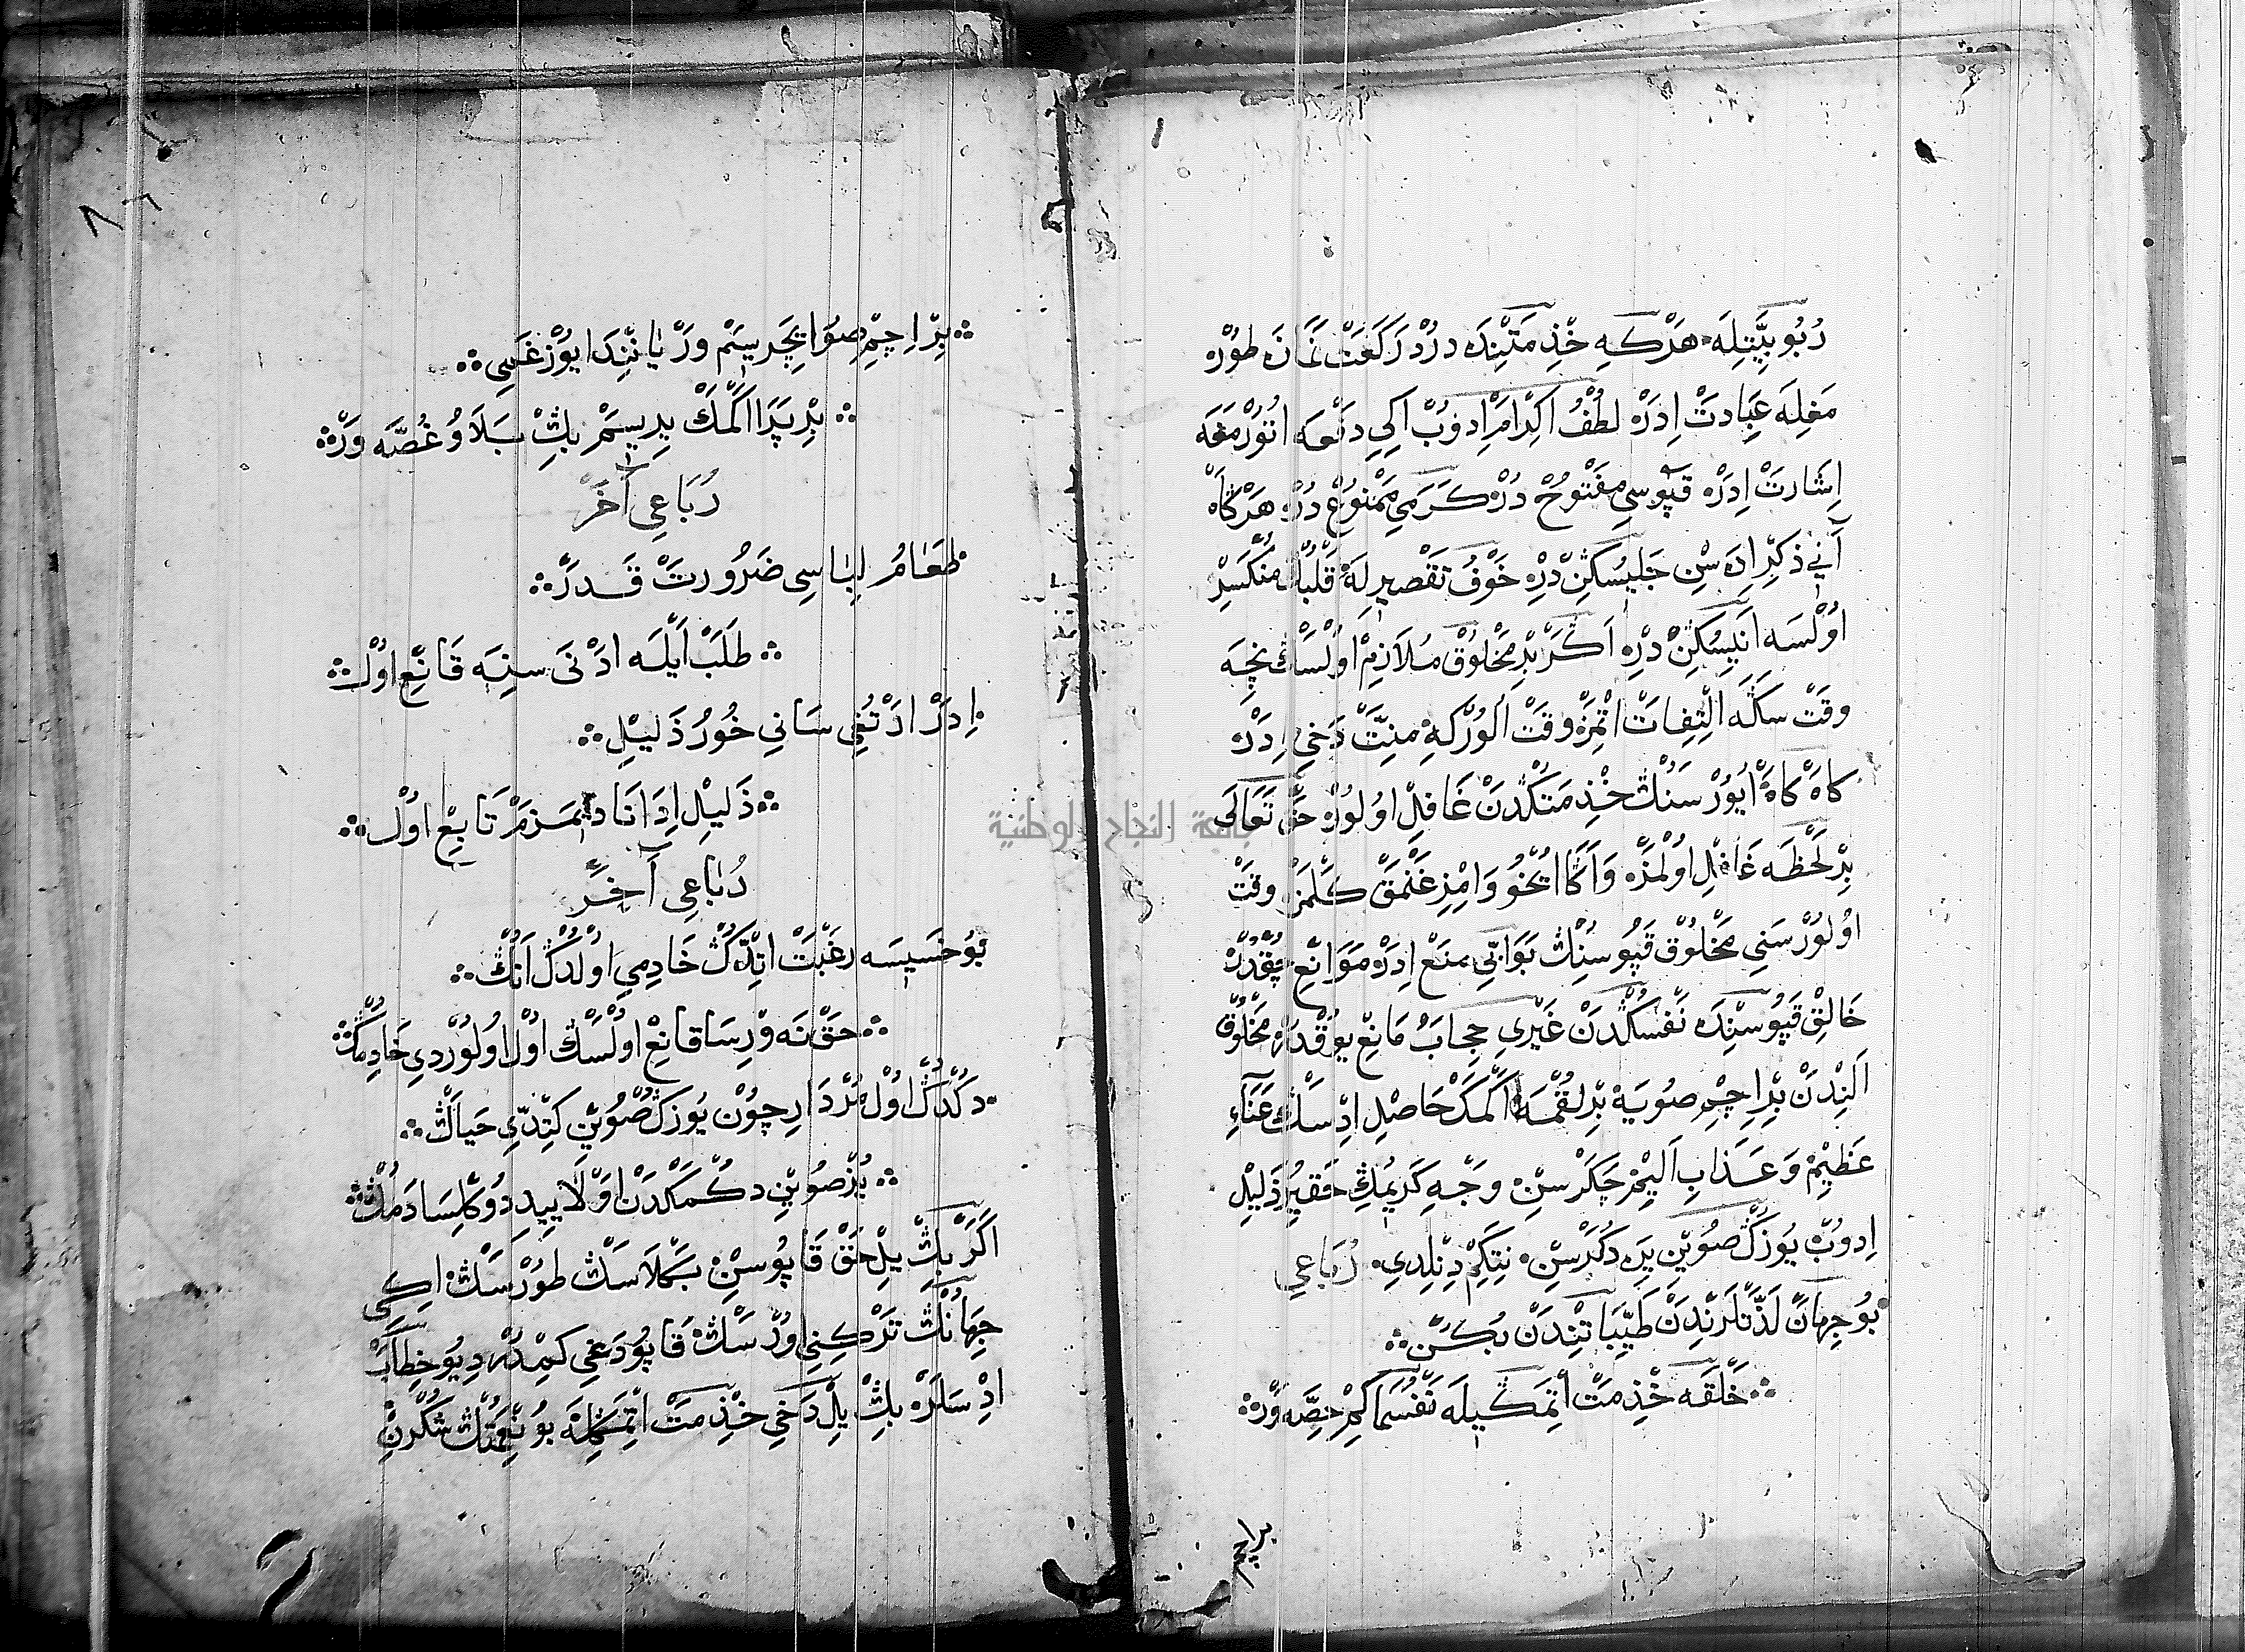 دُرْبُو بَيْتِلَه هَرْكِه خِذْمَتِنْدَه دُرْ دُرْ رَكَعَتْ نَمَازَه طُورُر
مَغِلَه عِبَادَتْ اِدَرْه لُطْفُ اَكْرَامْ اِدُوبْ اَكِي دَفْعَه اُتُورْمَغَه
اِشَارَتْ اِدَرْه قَپُوسِي مَفْتُوحْ دُرْه كَرَمِي مَمْنُوعْ دُرْه هَرْكَاهْ
اَنِي ذِكِرْ اِدَه سِنْ جَلِيسُكِنْ دِرْه خَوْفُ تَقْصِيرِلَه قَلْبُكْ مُنْكَسِرْ
اُولْسَه اَنِيسُكِنْ دِرْه اَكَرْ بِرْ مَخْلُوقْ مُلَازِمْ اُولْسَڭْ نِچَه
وَقَتْ سَكَه اَلْتِفِاتْ اتْمِزْه وَقَتْ اُلُورْكِه مِنَّتْ دَخِي اِدَرْ
كَاهْ كَاهْ اُيُورْ سَنُڭْ خِذْمَتُكْدَنْ غَافِلْ اُولُورْه حَقْ تَعَالَى
بِرْ لَحْظَه غَافِلْ اُولْمَزْه وَاَكَا اُيْخُو وَامِزِغَنْمَقْ كَلْمَزْ وَقَتْ
اُولُورْ سَنِي مَخْلُوقْ قَپُوسُنِڭْ بَوَابِي مَنَعْ اِدَرْه مَوَانِعْ چُقْدُرْه
خَالِقْ قَپُوسِنْدَه نَفْسُكْدَنْ غَيْرِي حِجَابُ مَانِعْ يُوقْدُرْه مَخْلُوقْ
اَلِنْدَنْ بِرْ اِچِمْ صُويَه بِرْ لُقْمَه اَكْمَكْ حَاصِلْ اِدِسَڭْ عَنَاءِ
عَظِيمْ وَعَذَابِ اَلِيمْ چَكَرْسِنْ وَجْهِ كَرِيمُڭِ حَقِيرُ ذَلِيلْ
اِدُوبْ يُوزُڭْ صُويِنْ يَرَه دُكَرْسِنْ نِتَكِمْ دِنِلْدِي رُبَاعِي
بُو جِهَانْ لَذَّتْلَرِنْدِنْ طَيِّبَاتِنْدَنْ بُكُنْ
خَلْقَه خِذْمَتْ اتْمَكِيلَه نَفْسُمَا كِمْ حِصَّه وَرْ
براچم
٨٦
بِرْ اِچِمْ صُو اِيچَرِسَمْ وَرْ يَانِنْدَا يُوزْ غَسِي
بِرْ پَرَا اَكْمَكْ يِرِسَمْ بِڭْ بَلَاوُ غُصَّه وَرْ
رُبَاعِي آخَرْ
طَعَامُ لِبَاسِي ضَرُورَتْ قَدَرْ
طَلَبْ اَيْلَه ادْنَى سِنِه قَانِعْ اوُلْ
اِدَرْ ارْتُغِي سَانِي خُورُ ذَلِيلِ
ذَلِيلْ اِدَانَا دِيمَزَمْ تَابِعْ اوُلْ
رُبَاعِي آخَرْ
بُو خَسِيسَه رَغْبَتْ اتْدُكْ خَادِمِي اُولْدُكْ اَنُڭْ
حَقْ نَه وِرْسَا قَانِعْ اُولْسَڭْ اُولْ اُولُورْدِي خَادِمُڭْ
دُكْدُڭْ اُولْ مُرْدَارِ چُونْ يُوزُڭْ صُويِنْ كِتْدِي حَيَاڭْ
يُزْ صُويِنْ دُكْمَكْدَنْ اَوْلَا يِيدِ دُوكُلْسَا دَمُڭْ
اَكَرْ بِڭْ يِلْ حَقْ قَاپُوسِنْ بَكْلَاسَڭْ طُورْسَڭْ اِكِي
جِهَانُڭْ تَرْكِنِي اُورْسَڭْ قَاپُودَغِي كِمْدُرْ دِيُو خِطَابْ
اِدْسَلَرْه بِڭْ يِلْ دَخِي خِذْمَتْ اتْمَكِلَه بُو نِعْمَتُڭْ شُكْرِنْ